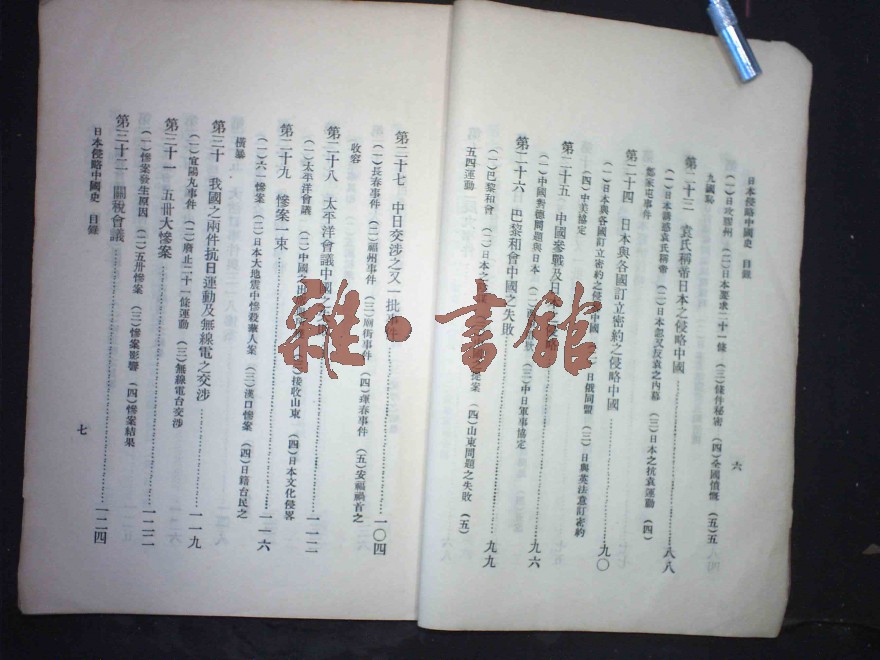 日本侵略中國史 目錄
六
(一)日攻膠州 (二)日本要求二十一條 (三)條件秘密 (四)全國憤慨 (五)五
九國恥
第二十三 袁氏稱帝日本之侵略中國……八八
(一)日本誘惑袁氏稱帝 (二)日本忽又反袁之內幕 (三)日本之抗袁運動 (四)
鄭家屯事件
第二十四 日本與各國訂立密約之侵略中國……九〇
(一)日本與各國訂立密約之侵 中國 日俄同盟 (三)日與英法意訂密約
(四)中美協定
第二十五 中國參戰及日本……九六
(一)中國對德問題與日本 (三)中日軍事協定
第二十六 巴黎和會中國之失敗……九九
(一)巴黎和會 (二)日本之 提案 (四)山東問題之失敗 (五)
五四運動
第二十七 中日交涉之又一批事件……一〇四
(一)長春事件 (二)福州事件 (三)廟街事件 (四)琿春事件 (五)安福禍首之
收容
第二十八 太平洋會議中國之……一一二
(一)太平洋會議 (二)中國之出 接收山東 (四)日本文化侵略
第二十九 慘案一束……一一六
(一)六一慘案 (二)日本大地震中慘殺華人案 (三)漢口慘案 (四)日籍台民之
橫暴
第三十 我國之兩件抗日運動及無線電之交涉……一一九
(一)宜陽丸事件 (二)廢止二十一條運動 (三)無線電台交涉
第三十一 五卅大慘案……一二二
(一)慘案發生原因 (二)五卅慘案 (三)慘案影響 (四)慘案結果
第三十二 關稅會議……一二四
日本侵略中國史 目錄
七
雜·書館